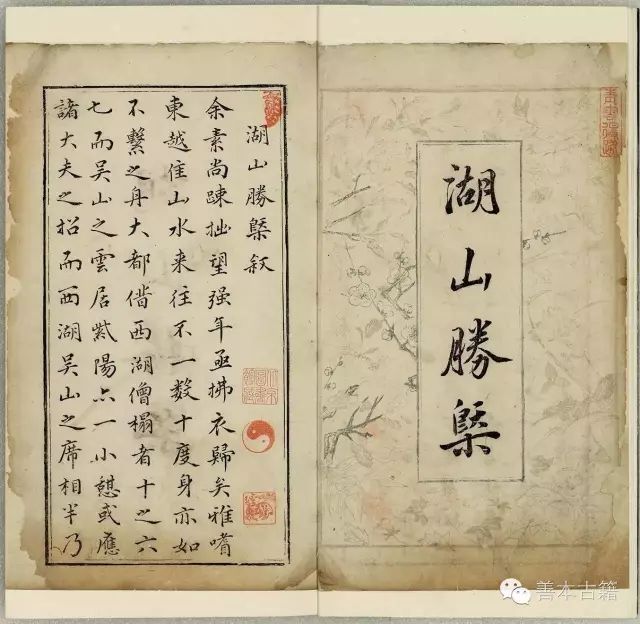 湖山勝槩
湖山勝槩叙
余素尚踈拙望强年亟拂衣歸矣雅嗜
東越佳山水来往不一数十度身亦如
不繫之身大都借西湖僧榻者十之六
七而吳山之雲居紫陽亦一小憇或應
諸大夫之招而西湖吳山之席相半乃
善本古籍